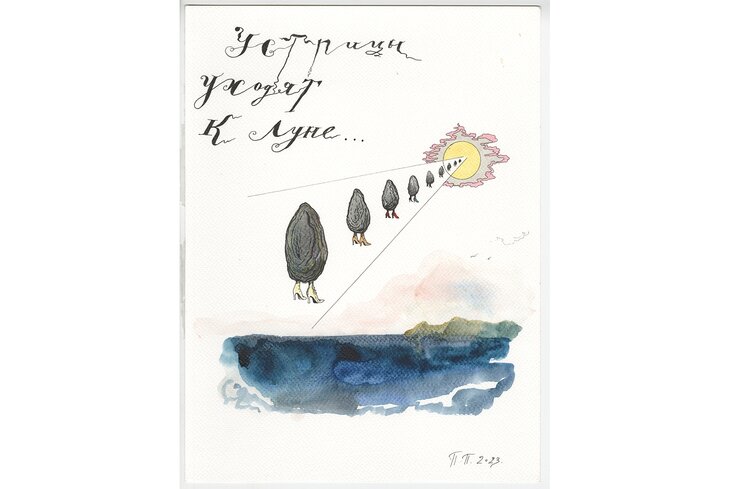 Устрицы
уходят
к Луне...
П.П. 2023.